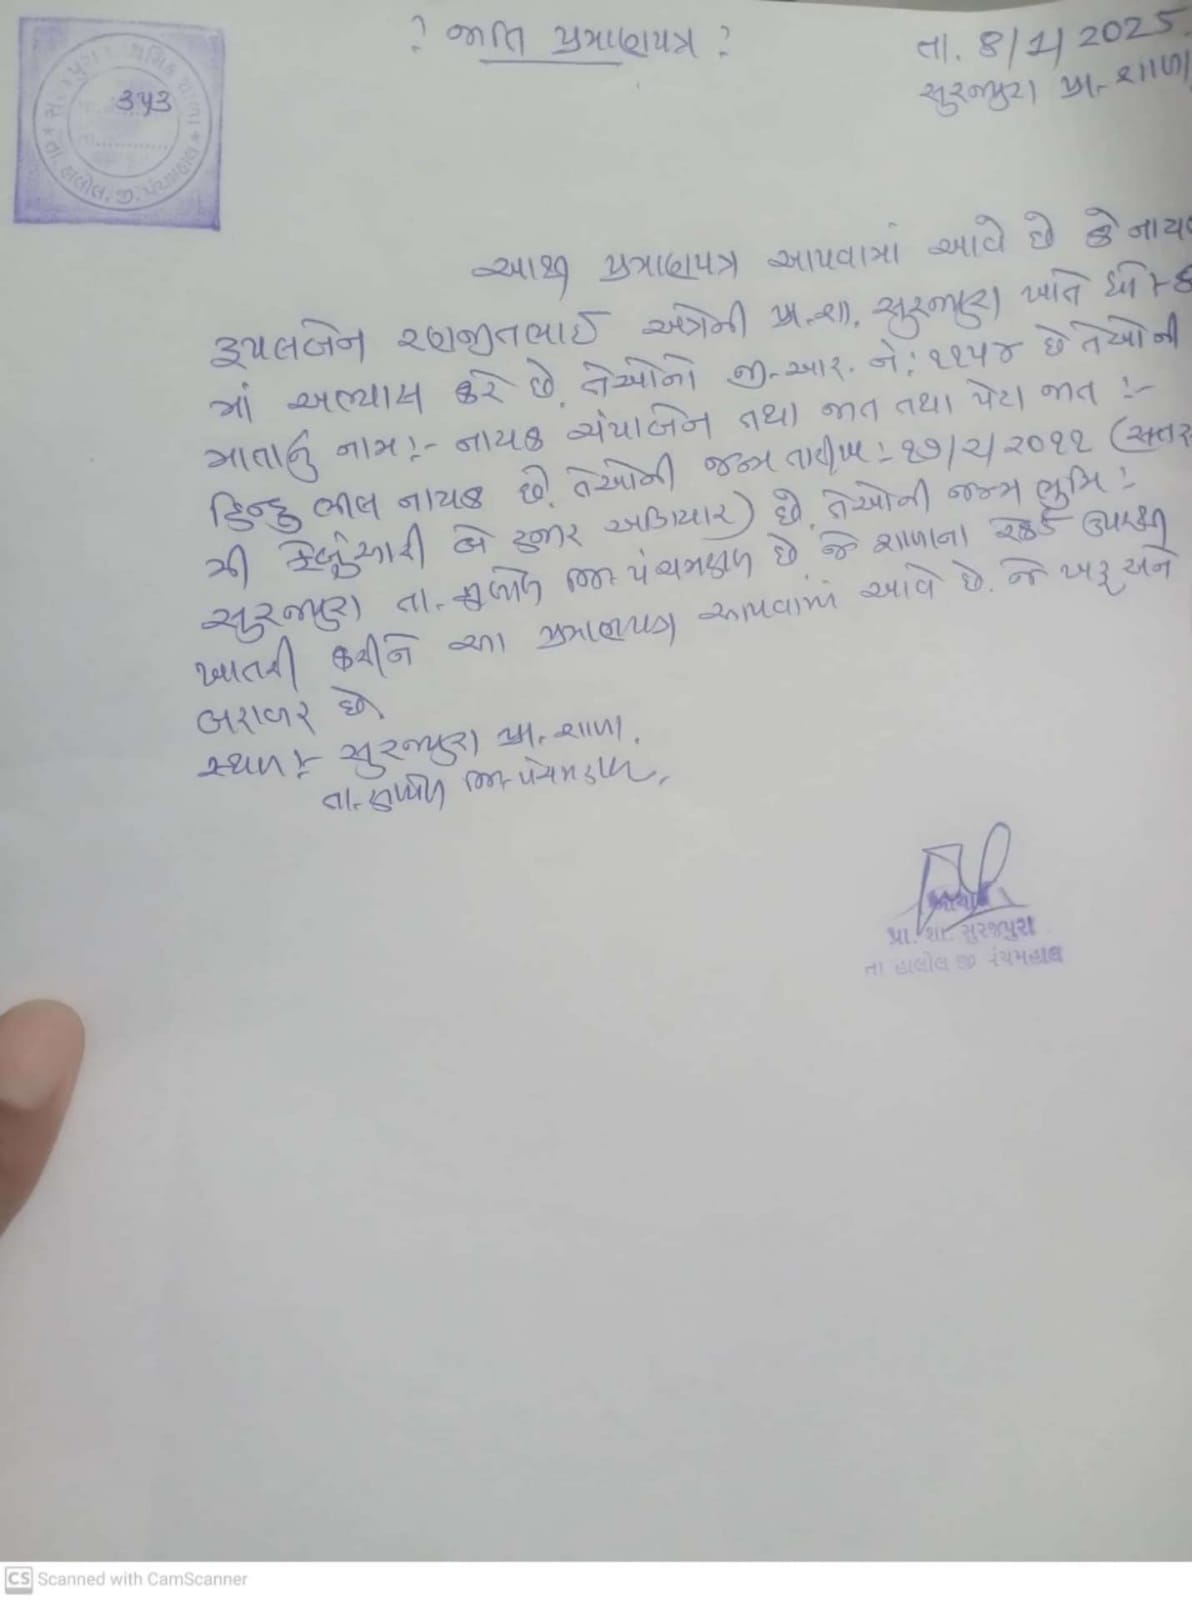 : જાતિ પ્રમાણપત્ર :
તા. 8/1/2025.
સુરજપુરા પ્રા. શાળા
૩૫૩
તા. હાલોલ, જી. પંચમહાલ
આથી પ્રમાણપત્ર આપવામાં આવે છે કે નાયક
રૂપલબેન રણજીતભાઈ અત્રેની પ્રા.શા. સુરજપુરા ખાતે ધો-૮
માં અભ્યાસ કરે છે. તેઓનો જી.આર. નં: ૧૧૫૪ છે તેઓની
માતાનું નામ :- નાયક ચંપાબેન તથા જાત તથા પેટા જાત :-
હિન્દુ ભીલ નાયક છે. તેઓની જન્મ તારીખ :- ૧૭/૨/૨૦૧૧ (સત્તર
મી ફેબ્રુઆરી બે હજાર અગિયાર) છે. તેઓની જન્મ ભુમિ :
સુરજપુરા તા. હાલોલ જિ પંચમહાલ છે જે શાળાના રેકર્ડ ઉપરથી
ખાતરી કરીને આ પ્રમાણપત્ર આપવામાં આવે છે. જે ખરૂ અને
બરાબર છે.
સ્થળ :- સુરજપુરા પ્રા. શાળા.
તા. હાલોલ જિ પંચમહાલ.
આચાર્ય
પ્રા. શા. સુરજપુરા
તા હાલોલ જી પંચમહાલ
CS Scanned with CamScanner